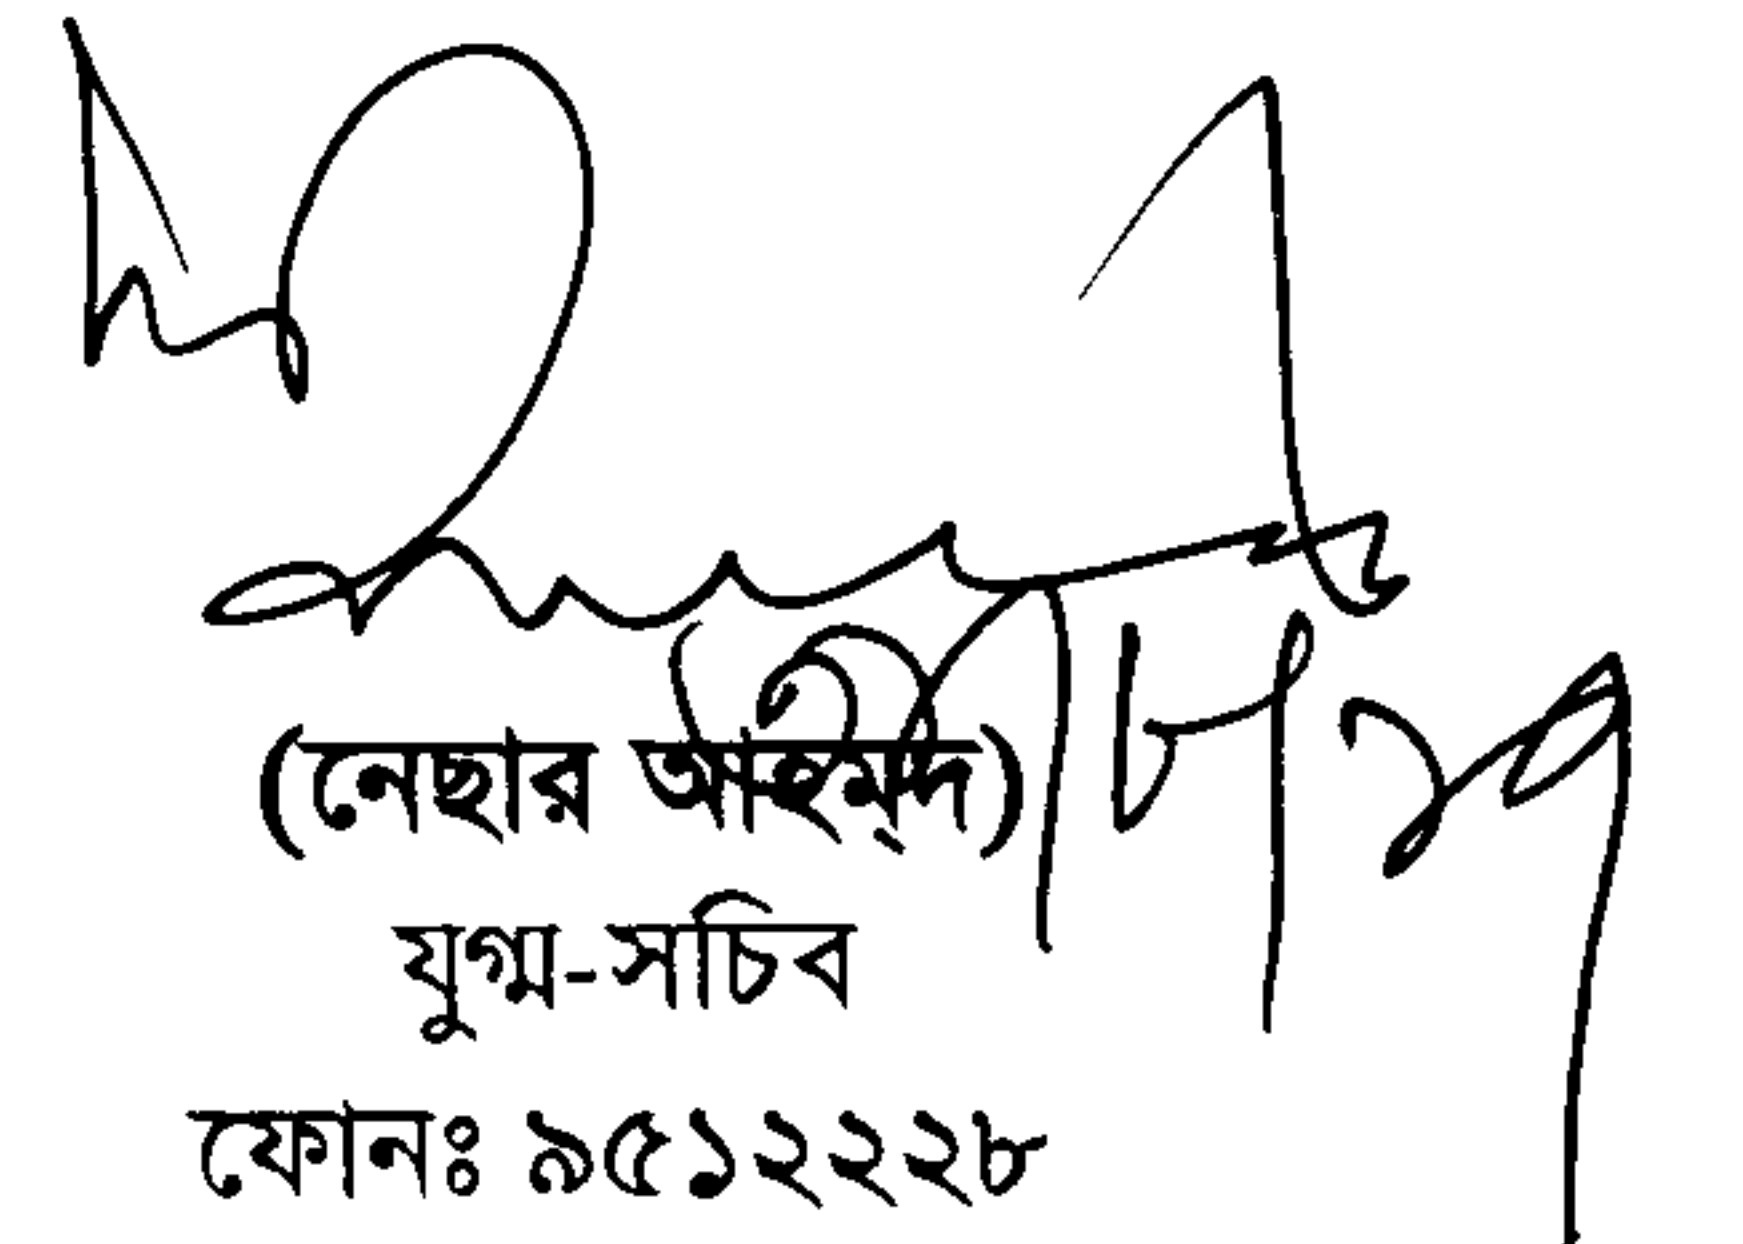 (নেছার আহম্‌দ)
যুগ্ম-সচিব
ফোনঃ ৯৫১২২২৮